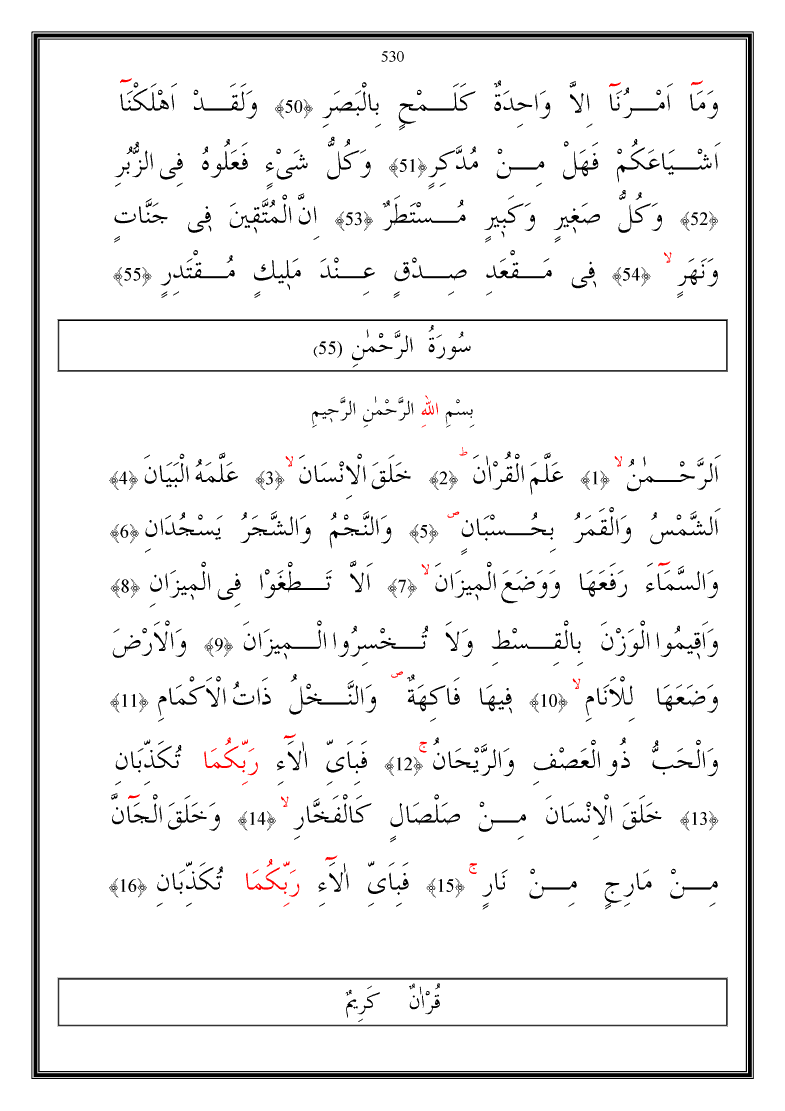 530
وَمَٓا اَمْـــرُنَٓا اِلاَّ وَاحِدَةٌ كَلَـــمْحٍ بِالْبَصَرِ ﴿50﴾ وَلَقَـــدْ اَهْلَكْنَٓا
اَشْـــيَاعَكُمْ فَهَلْ مِـــنْ مُدَّكِرٍ ﴿51﴾ وَكُلُّ شَىْءٍ فَعَلُوهُ فِى الزُّبُرِ
﴿52﴾ وَكُلُّ صَغٖيرٍ وَكَبٖيرٍ مُـــسْتَطَرٌ ﴿53﴾ اِنَّ الْمُتَّقٖينَ فٖى جَنَّاتٍ
وَنَهَرٍ ۙ ﴿54﴾ فٖى مَـــقْعَدِ صِـــدْقٍ عِـــنْدَ مَلٖيكٍ مُـــقْتَدِرٍ ﴿55﴾
سُورَةُ الرَّحْمٰنِ (55)
بِسْمِ اللّٰهِ الرَّحْمٰنِ الرَّحٖيمِ
اَلرَّحْـــمٰنُ ۙ ﴿1﴾ عَلَّمَ الْقُرْاٰنَ ؕ ﴿2﴾ خَلَقَ الْاِنْسَانَ ۙ ﴿3﴾ عَلَّمَهُ الْبَيَانَ ﴿4﴾
اَلشَّمْسُ وَالْقَمَرُ بِحُـــسْبَانٍ ۖ ﴿5﴾ وَالنَّجْمُ وَالشَّجَرُ يَسْجُدَانِ ﴿6﴾
وَالسَّمَٓاءَ رَفَعَهَا وَوَضَعَ الْمٖيزَانَ ۙ ﴿7﴾ اَلاَّ تَـــطْغَوْا فِى الْمٖيزَانِ ﴿8﴾
وَاَقٖيمُوا الْوَزْنَ بِالْقِـــسْطِ وَلاَ تُـــخْسِرُوا الْـــمٖيزَانَ ﴿9﴾ وَالْاَرْضَ
وَضَعَهَا لِلْاَنَامِ ۙ ﴿10﴾ فٖيهَا فَاكِهَةٌ ۖ وَالنَّـــخْلُ ذَاتُ الْاَكْمَامِ ﴿11﴾
وَالْحَبُّ ذُو الْعَصْفِ وَالرَّيْحَانُ ۚ ﴿12﴾ فَبِاَىِّ اٰلَٓاءِ رَبِّكُمَا تُكَذِّبَانِ
﴿13﴾ خَلَقَ الْاِنْسَانَ مِـــنْ صَلْصَالٍ كَالْفَخَّارِ ۙ ﴿14﴾ وَخَلَقَ الْجَٓانَّ
مِـــنْ مَارِجٍ مِـــنْ نَارٍ ۚ ﴿15﴾ فَبِاَىِّ اٰلَٓاءِ رَبِّكُمَا تُكَذِّبَانِ ﴿16﴾
قُرْاٰنٌ كَرِيمٌ